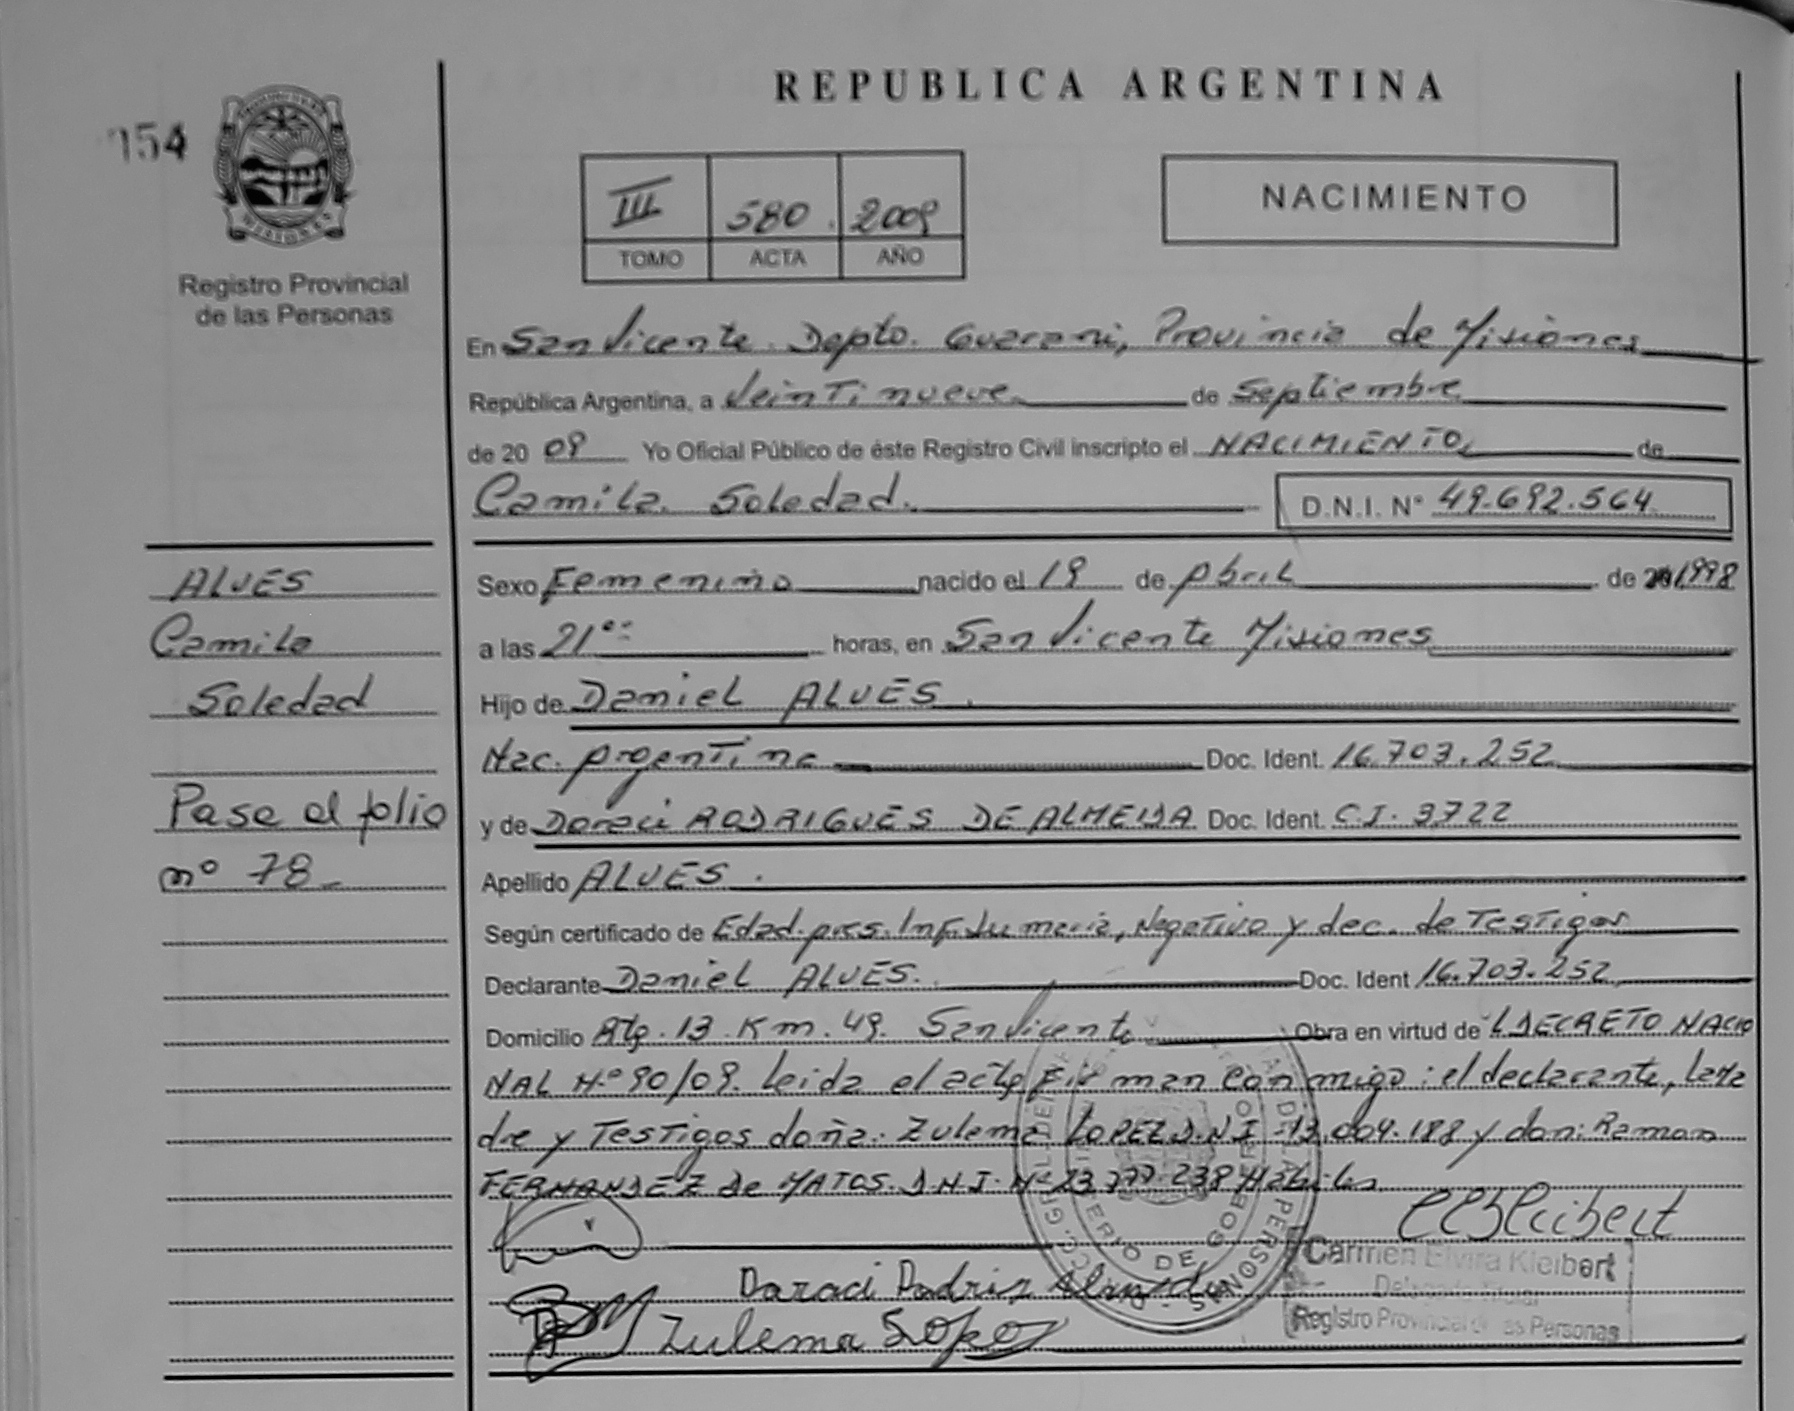 REPUBLICA ARGENTINA
154
III 580. 2009
TOMO ACTA AÑO
NACIMIENTO
MISIONES
Registro Provincial
de las Personas
En San Vicente. Depto. Guarani, Provincia de Misiones
República Argentina, a Veintinueve de Septiembre
de 20 09 Yo Oficial Público de éste Registro Civil inscripto el NACIMIENTO, de
Camila Soledad. D.N.I. Nº 49.692.564
ALVES
Camila
Soledad
Pase al folio
nº 78
Sexo Femenino nacido el 19 de Abril de 1998
a las 21 horas, en San Vicente Misiones
Hijo de Daniel ALVES.
Nac. Argentina Doc. Ident. 16.703.252
y de Doraci RODRIGUES DE ALMEIDA Doc. Ident. C.I. 3722
Apellido ALVES.
Según certificado de Edad. pres. Inf. Sumaria, Negativo y dec. de Testigos
Declarante Daniel ALVES. Doc. Ident 16.703.252
Domicilio Rta. 13 Km. 49. San Vicente Obra en virtud del DECRETO NACIO
NAL Nº 90/09. Leida el acta Firman conmigo: el declarante, la ma
dre y Testigos doña: Zulema LOPEZ D.N.I 13.004.188 y don: Ramon
FERNANDEZ de MATOS. D.N.I. Nº 23.377.238 Hábiles
Daraci Zulema Lopez
Carmen Elvira Kleibert
Delegada Titular
Registro Provincial de las Personas
MINISTERIO DE GOBIERNO